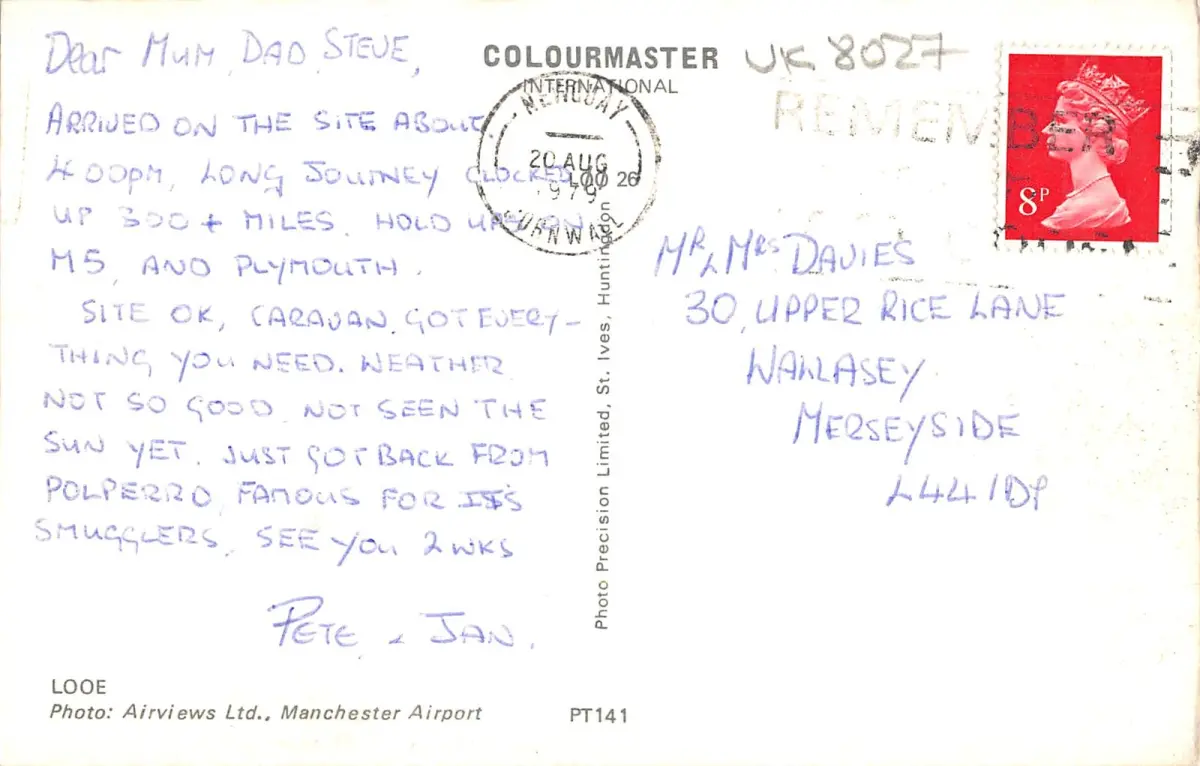 Dear MUM, DAD, STEVE,
ARRIVED ON THE SITE ABOUT
4 00pm, LONG JOURNEY CLOCKED
UP 300 + MILES. HOLD UPS ON
M5, AND PLYMOUTH.
SITE OK, CARAVAN, GOT EVERY-
THING YOU NEED. WEATHER
NOT SO GOOD NOT SEEN THE
SUN YET. JUST GOT BACK FROM
POLPERRO, FAMOUS FOR ITS
SMUGGLERS, SEE YOU 2 WKS
PETE & JAN.
LOOE
Photo: Airviews Ltd., Manchester Airport
PT141
COLOURMASTER
INTERNATIONAL
LOO 26
Photo Precision Limited, St. Ives, Huntingdon
NEWQUAY
20 AUG
1979
CORNWALL
UK 8027
REMEMBER
8P
MR & MRS DAVIES
30, UPPER RICE LANE
WALLASEY
MERSEYSIDE
L44 1DP